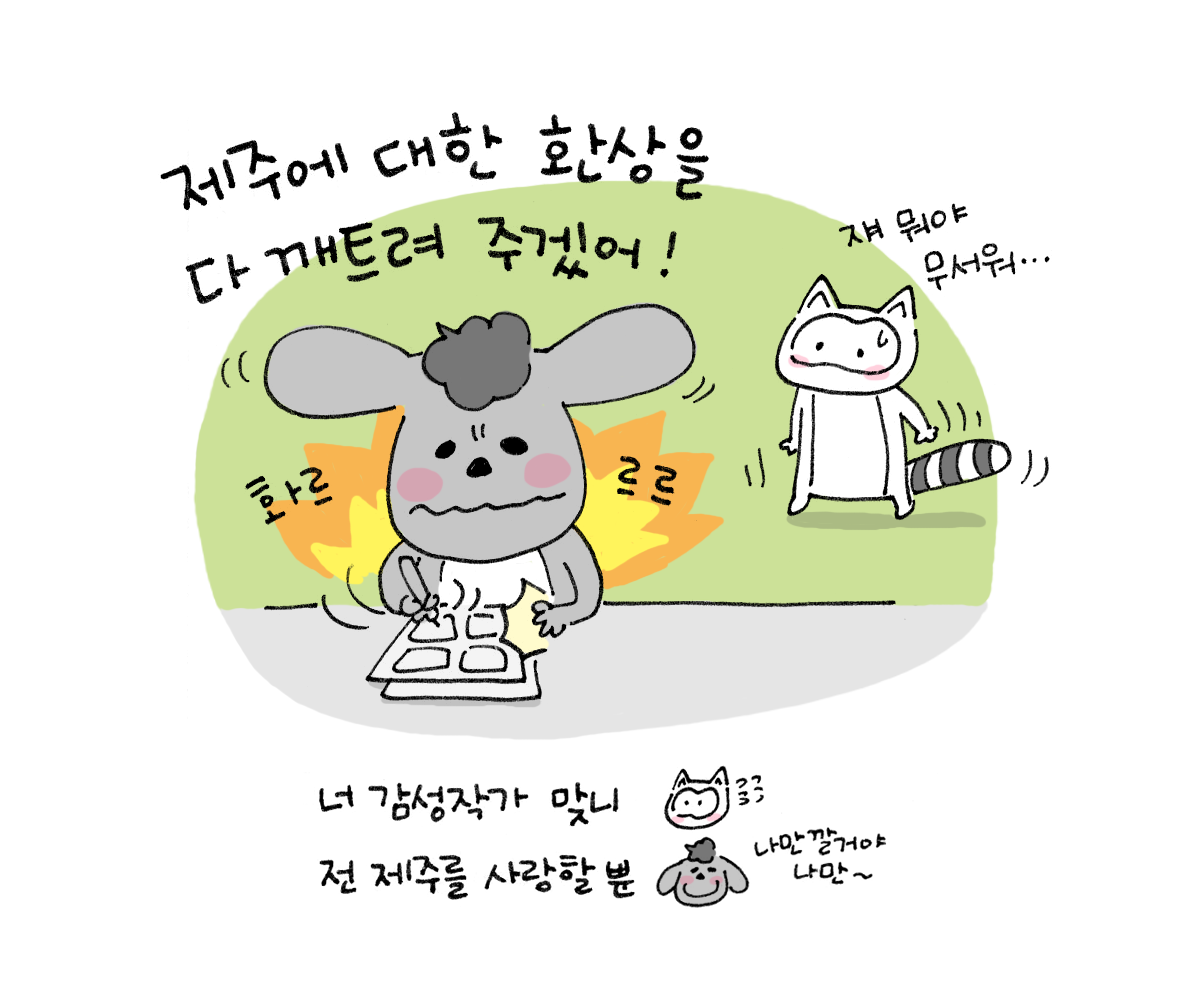 제주에 대한 환상을
다 깨트려 주겠어!
쟤 뭐야
무서워...
화르
르르
너 감성작가 맞니
전 제주를 사랑할 뿐
나만 깔거야
나만~